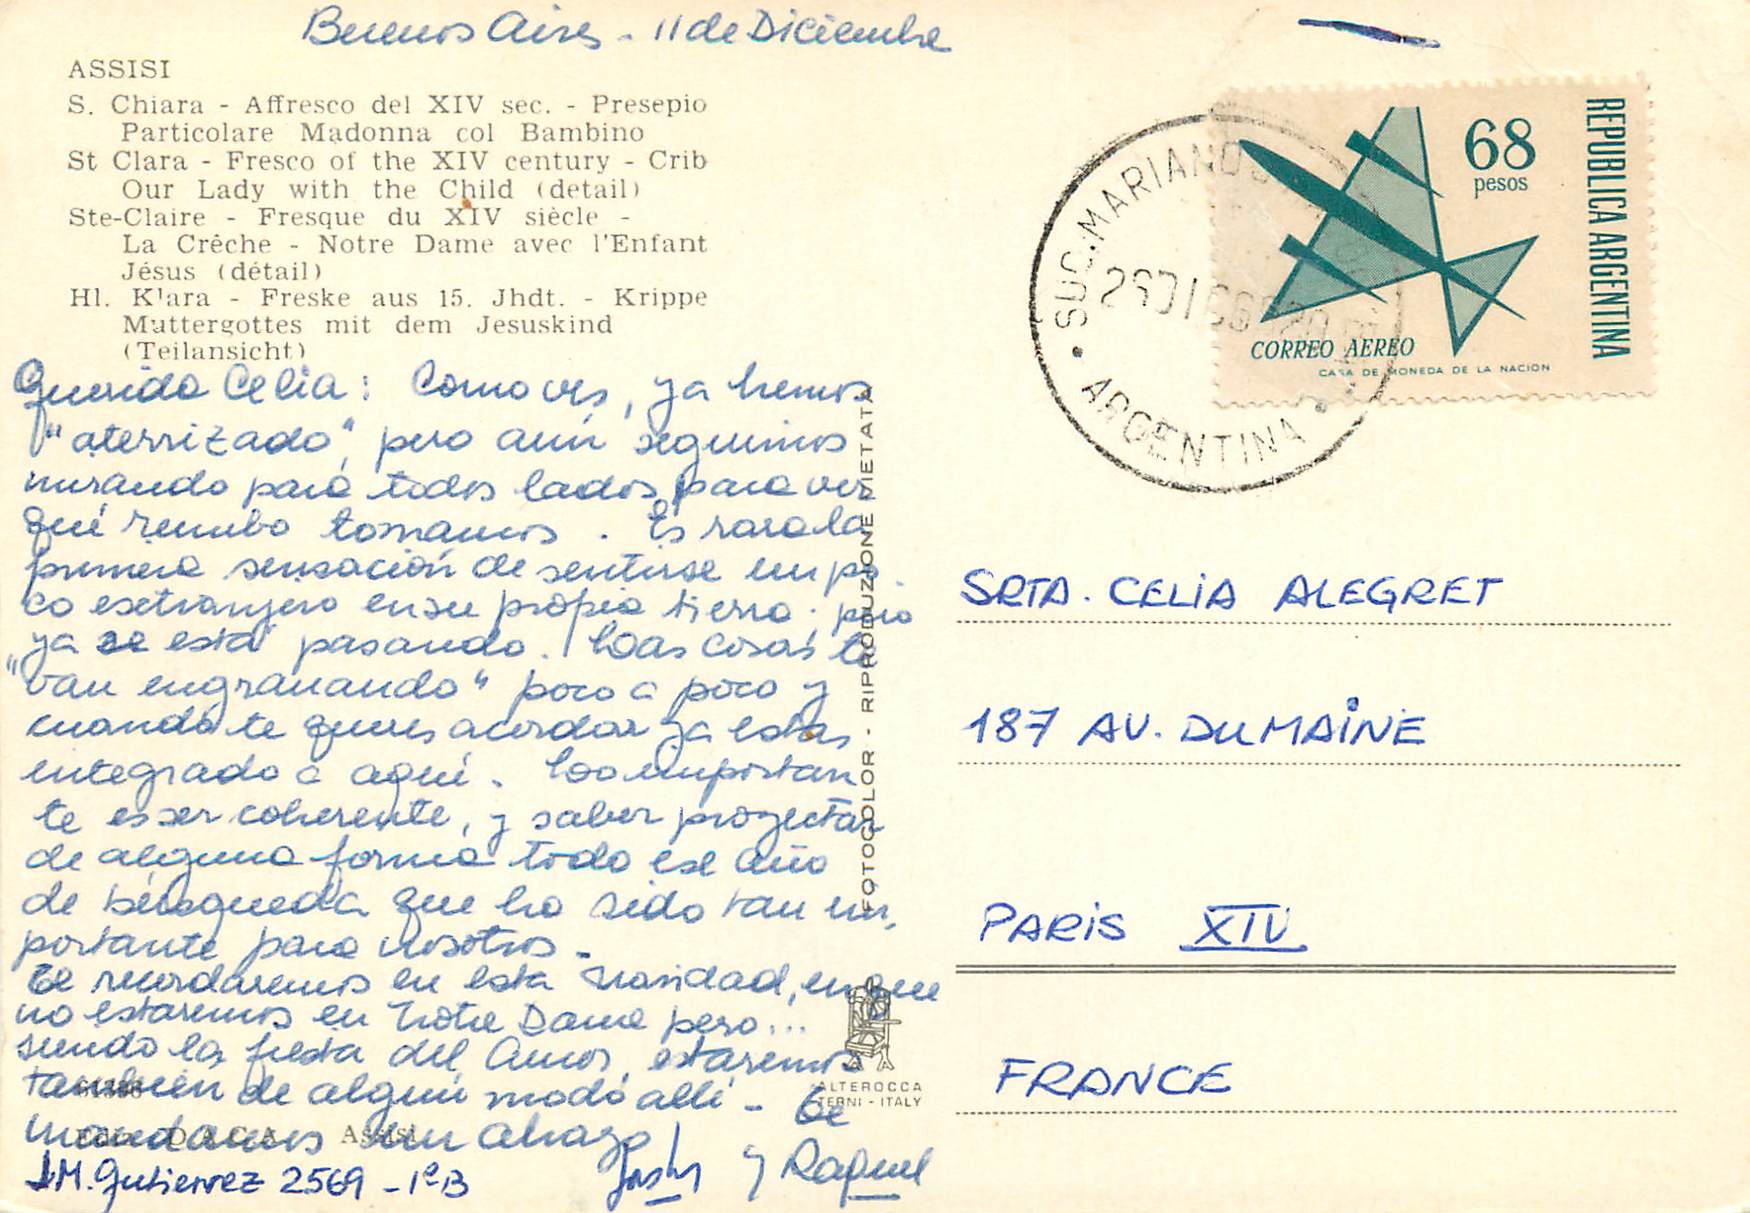 Buenos Aires - 11 de Diciembre
ASSISI
S. Chiara - Affresco del XIV sec. - Presepio
Particolare Madonna col Bambino
St Clara - Fresco of the XIV century - Crib
Our Lady with the Child (detail)
Ste-Claire - Fresque du XIV siècle -
La Crêche - Notre Dame avec l'Enfant
Jésus (détail)
Hl. Klara - Freske aus 15. Jhdt. - Krippe
Muttergottes mit dem Jesuskind
(Teilansicht)
Querida Celia: Como ves, ya hemos
"aterrizado", pero aún seguimos
mirando para todos lados, para ver
qué rumbo tomamos. Es rara la
primera sensación de sentirse un po-
co extranjero en su propia tierra; pero
ya se está pasando. Las cosas te
"van engranando" poco a poco y
cuando te queres acordar ya estas
integrado a aquí. Lo importan
te es ser coherente, y saber proyectar
de alguna forma todo ese año
de búsqueda que ha sido tan im-
portante para nosotros -
Te recordaremos en esta navidad, en que
no estaremos en Notre Dame pero...
siendo la fiesta del Amor, estaremos
también de algún modo allí - Te
mandamos un abrazo
y Raquel
J.M. Gutierrez 2569 - 1º B
61386
ASSISI
FOTOCOLOR - RIPRODUZIONE VIETATA
ALTEROCCA
TERNI - ITALY
REPUBLICA ARGENTINA
68
pesos
CORREO AEREO
CASA DE MONEDA DE LA NACION
SUC. MARIANO
ARGENTINA
SRTA. CELIA ALEGRET
187 AV. DU MAINE
PARIS XIV
FRANCE